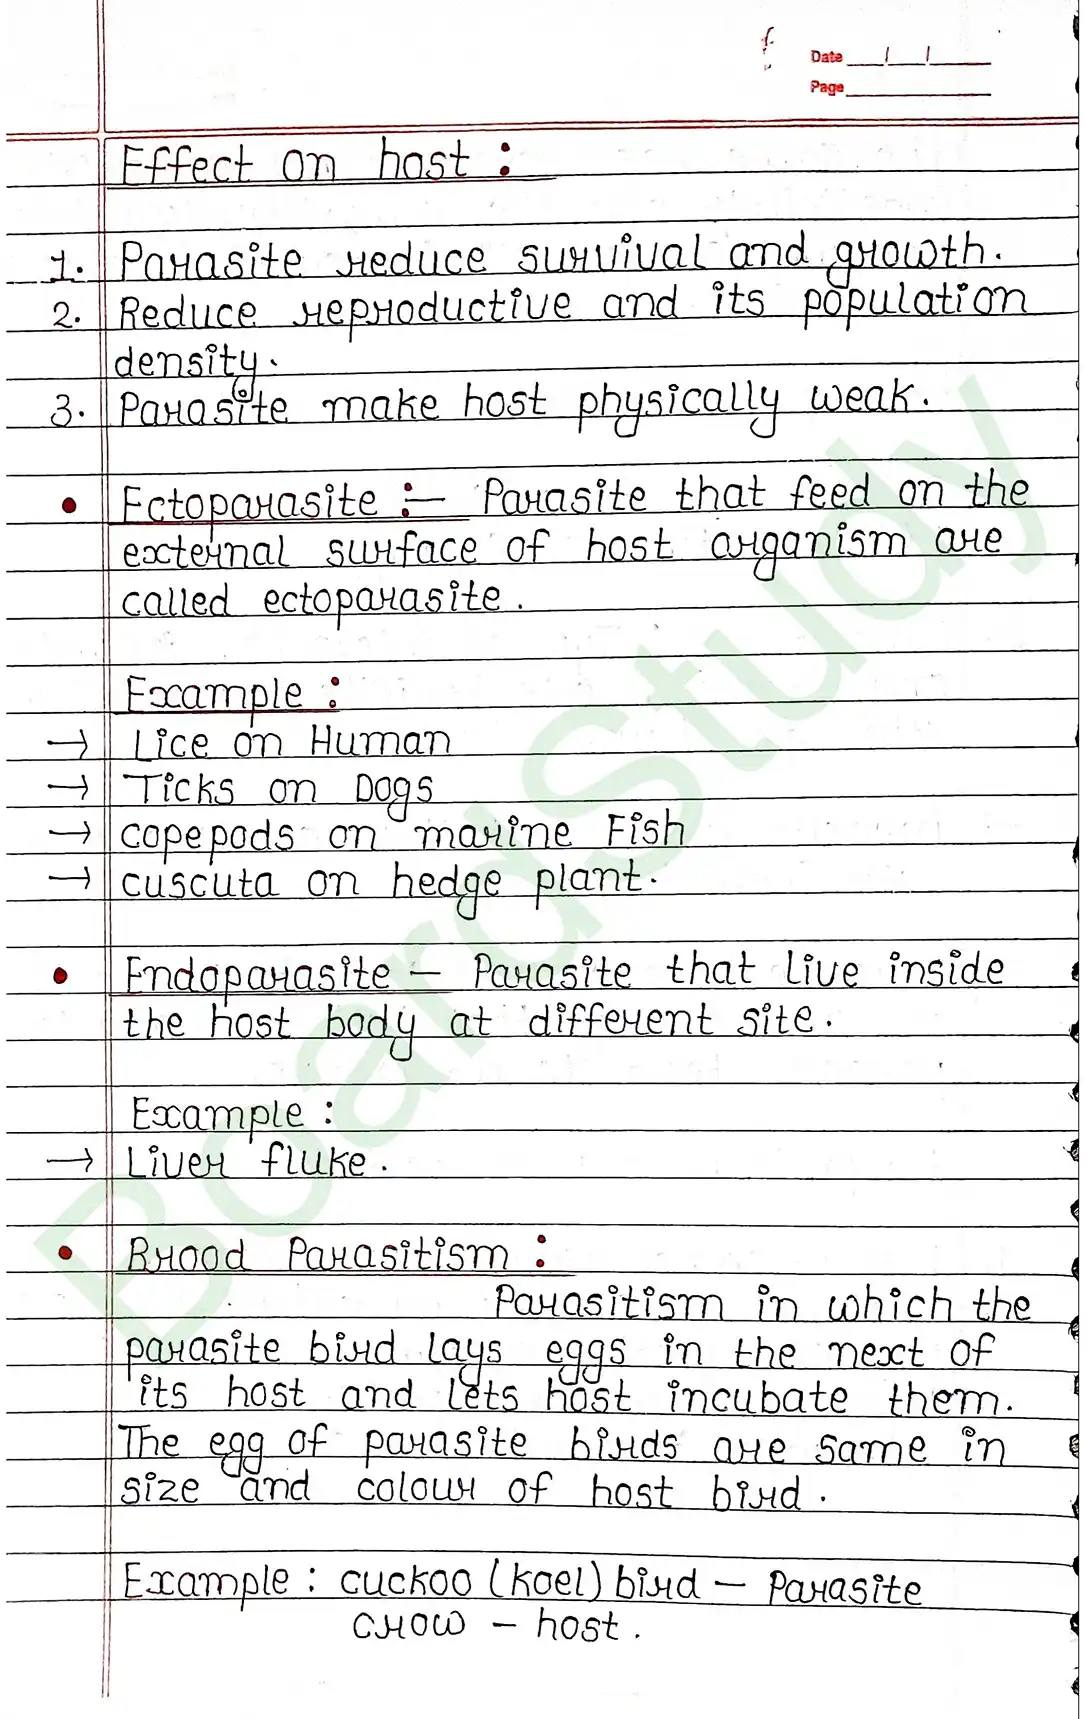 Date __/__/____
Page__________
Effect on host :
1. Parasite reduce survival and growth.
2. Reduce reproductive and its population
density.
3. Parasite make host physically weak.
• Ectoparasite :- Parasite that feed on the
external surface of host organism are
called ectoparasite.
Example :
→ Lice on Human
→ Ticks on Dogs
→ copepods on marine Fish
→ cuscuta on hedge plant.
• Endoparasite – Parasite that live inside
the host body at different site.
Example :
→ Liver fluke.
• Brood Parasitism :
Parasitism in which the
parasite bird lays eggs in the next of
its host and lets host incubate them.
The egg of parasite birds are same in
size and colour of host bird.
Example : cuckoo (koel) bird – Parasite
crow – host.
BoardStudy